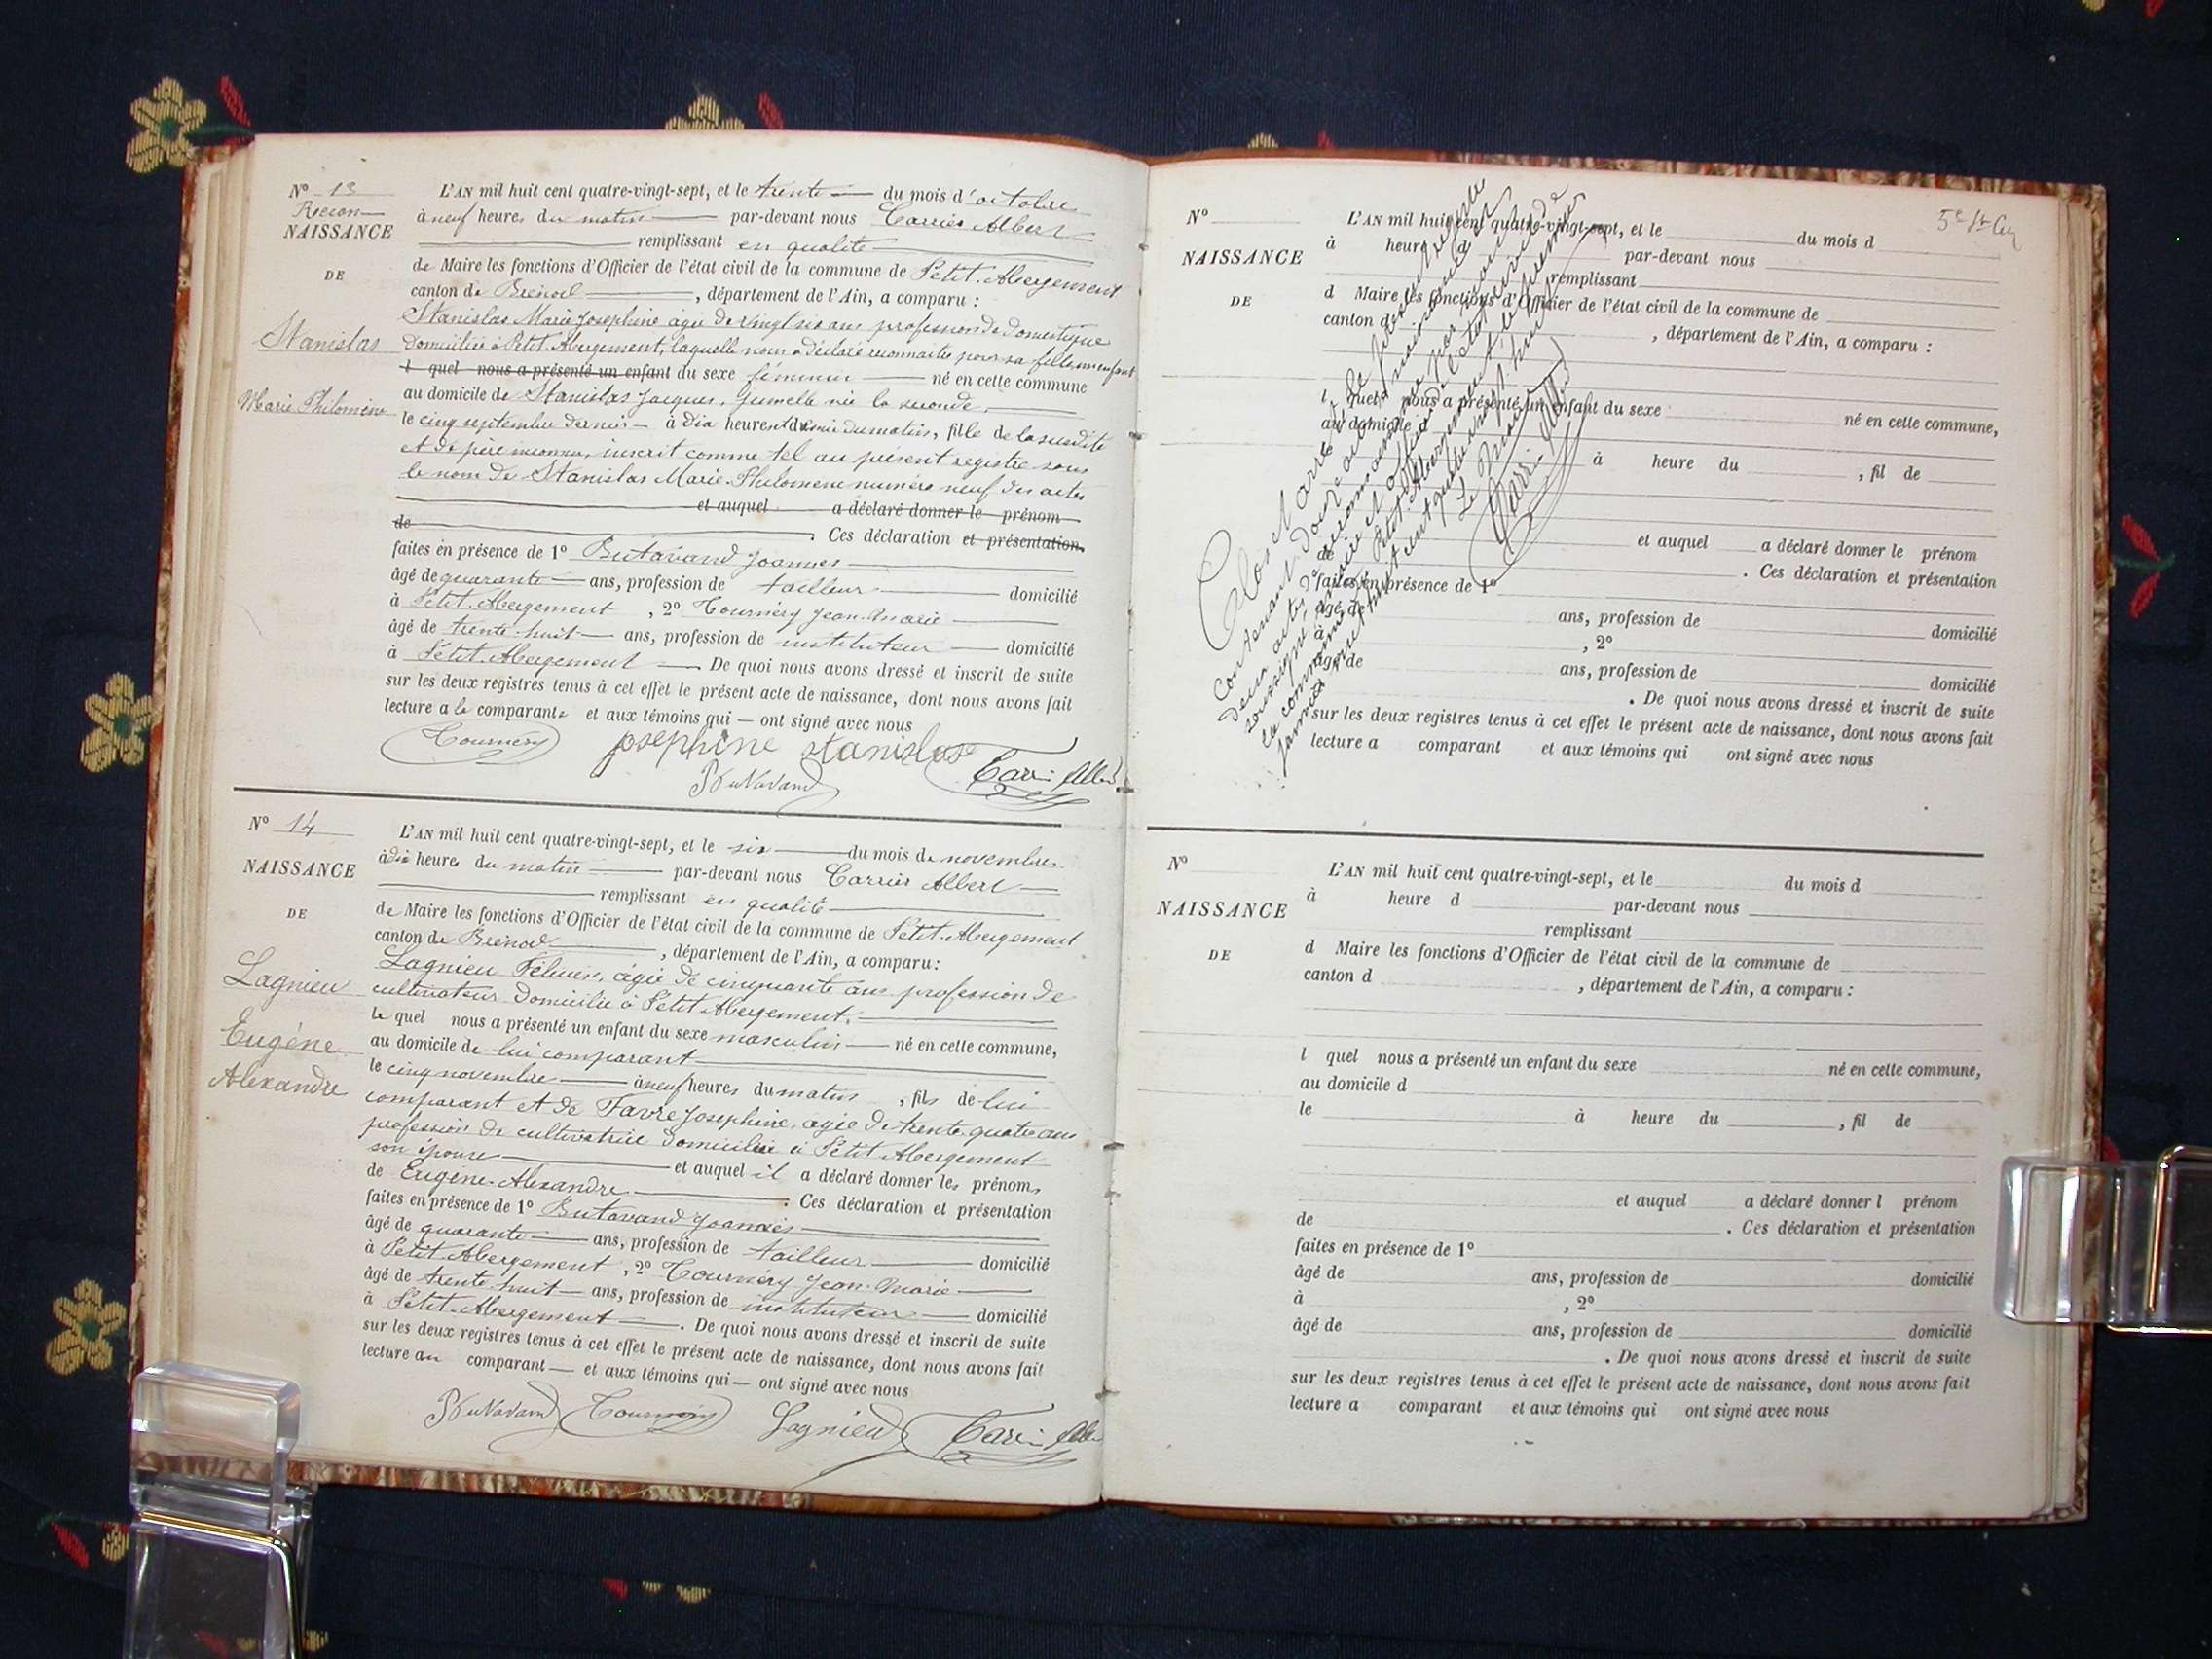 N° 13
Recon
NAISSANCE
DE
Stanislas
Marie Philomène
L'AN mil huit cent quatre-vingt-sept, et le trente du mois d'octobre
à neuf heures du matin par-devant nous Carrier Albert
remplissant en qualité
de Maire les fonctions d'Officier de l'état civil de la commune de Petit-Abergement
canton de Brénod, département de l'Ain, a comparu :
Stanislas Marie Josephine agée de vingt six ans profession de domestique
domiciliée à Petit-Abergement, laquelle nous a déclaré reconnaitre pour sa fille, un enfant
l quel nous a présenté un enfant du sexe féminin né en cette commune
au domicile de Stanislas Jacques, jumelle née la seconde,
le cinq septembre dernier à dix heures et demie du matin, fille de la susdite
et de père inconnu, inscrit comme tel au présent registre sous
le nom de Stanislas Marie-Philomène numéro neuf des actes
et auquel a déclaré donner le prénom
de . Ces déclaration et présentation
faites en présence de 1° Butavand Joannes
âgé de quarante ans, profession de tailleur domicilié
à Petit-Abergement, 2° Tournéry Jean-Marie
âgé de trente-huit ans, profession de instituteur domicilié
à Petit-Abergement . De quoi nous avons dressé et inscrit de suite
sur les deux registres tenus à cet effet le présent acte de naissance, dont nous avons fait
lecture a la comparante et aux témoins qui ont signé avec nous
Tournéry josephine stanislase
Butavand Carrier Albert
N° 14
NAISSANCE
DE
Lagnieu
Eugène
Alexandre
L'AN mil huit cent quatre-vingt-sept, et le six du mois de novembre
à dix heures du matin par-devant nous Carrier Albert
remplissant en qualité
de Maire les fonctions d'Officier de l'état civil de la commune de Petit-Abergement
canton de Brénod, département de l'Ain, a comparu :
Lagnieu agé de cinquante ans profession de
cultivateur domicilié à Petit-Abergement,
le quel nous a présenté un enfant du sexe masculin né en cette commune,
au domicile de lui comparant
le cinq novembre à neuf heures du matin, fils de lui
comparant et de Favre Josephine, agée de trente-quatre ans
profession de cultivatrice domiciliée à Petit-Abergement
son épouse et auquel il a déclaré donner les prénoms
de Eugène-Alexandre . Ces déclaration et présentation
faites en présence de 1° Butavand Joannès
âgé de quarante ans, profession de tailleur domicilié
à Petit-Abergement, 2° Tournéry Jean-Marie
âgé de trente-huit ans, profession de instituteur domicilié
à Petit-Abergement . De quoi nous avons dressé et inscrit de suite
sur les deux registres tenus à cet effet le présent acte de naissance, dont nous avons fait
lecture au comparant et aux témoins qui ont signé avec nous
Butavand Tournéry Lagnieu Carrier Albert
N°
NAISSANCE
DE
L'AN mil huit cent quatre-vingt-sept, et le du mois d
à heure d par-devant nous
remplissant
d Maire les fonctions d'Officier de l'état civil de la commune de
canton d , département de l'Ain, a comparu :
l quel nous a présenté un enfant du sexe né en cette commune,
au domicile d
à heure du , fil de
et auquel a déclaré donner le prénom
de . Ces déclaration et présentation
faites en présence de 1°
âgé de ans, profession de domicilié
à , 2°
âgé de ans, profession de domicilié
. De quoi nous avons dressé et inscrit de suite
sur les deux registres tenus à cet effet le présent acte de naissance, dont nous avons fait
lecture a comparant et aux témoins qui ont signé avec nous
Clos et arrêté le présent registre
contenant douze actes de naissance et
deux actes de reconnaissance par nous
soussigné maire et officier de l'état civil de
la commune de Petit-Abergement, le premier
janvier mil huit cent quatre vingt huit
Le Maire
Carrier Albert
N°
NAISSANCE
DE
L'AN mil huit cent quatre-vingt-sept, et le du mois d
à heure d par-devant nous
remplissant
d Maire les fonctions d'Officier de l'état civil de la commune de
canton d , département de l'Ain, a comparu :
l quel nous a présenté un enfant du sexe né en cette commune,
au domicile d
le à heure du , fil de
et auquel a déclaré donner l prénom
de . Ces déclaration et présentation
faites en présence de 1°
âgé de ans, profession de domicilié
à , 2°
âgé de ans, profession de domicilié
. De quoi nous avons dressé et inscrit de suite
sur les deux registres tenus à cet effet le présent acte de naissance, dont nous avons fait
lecture a comparant et aux témoins qui ont signé avec nous